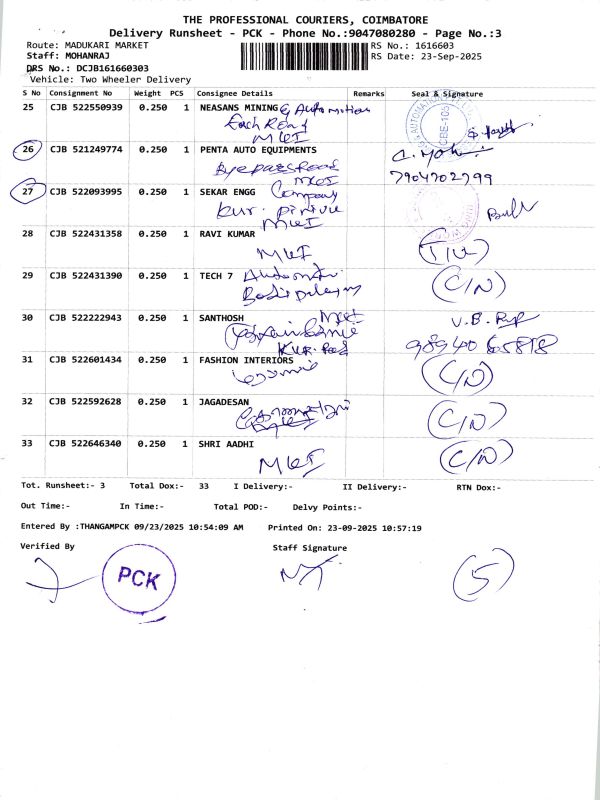 THE PROFESSIONAL COURIERS, COIMBATORE
Delivery Runsheet - PCK - Phone No.:9047080280 - Page No.:3
Route: MADUKARI MARKET
RS No.: 1616603
Staff: MOHANRAJ
RS Date: 23-Sep-2025
DRS No.: DCJB161660303
Vehicle: Two Wheeler Delivery
S No Consignment No Weight PCS Consignee Details Remarks Seal & Signature
25 CJB 522550939 0.250 1 NEASANS MINING & Automation
MKI
26 CJB 521249774 0.250 1 PENTA AUTO EQUIPMENTS
Byepass Road
MKI
7904702799
27 CJB 522093995 0.250 1 SEKAR ENGG Company
Kur. pirivu
MKI
28 CJB 522431358 0.250 1 RAVI KUMAR
MKI
29 CJB 522431390 0.250 1 TECH 7
(C/N)
30 CJB 522222943 0.250 1 SANTHOSH MKI
V.B.
98940 65818
31 CJB 522601434 0.250 1 FASHION INTERIORS
32 CJB 522592628 0.250 1 JAGADESAN
(C/N)
33 CJB 522646340 0.250 1 SHRI AADHI
MKI
(C/N)
Tot. Runsheet:- 3 Total Dox:- 33 I Delivery:- II Delivery:- RTN Dox:-
Out Time:- In Time:- Total POD:- Delvy Points:-
Entered By :THANGAMPCK 09/23/2025 10:54:09 AM Printed On: 23-09-2025 10:57:19
Verified By Staff Signature
PCK
(5)